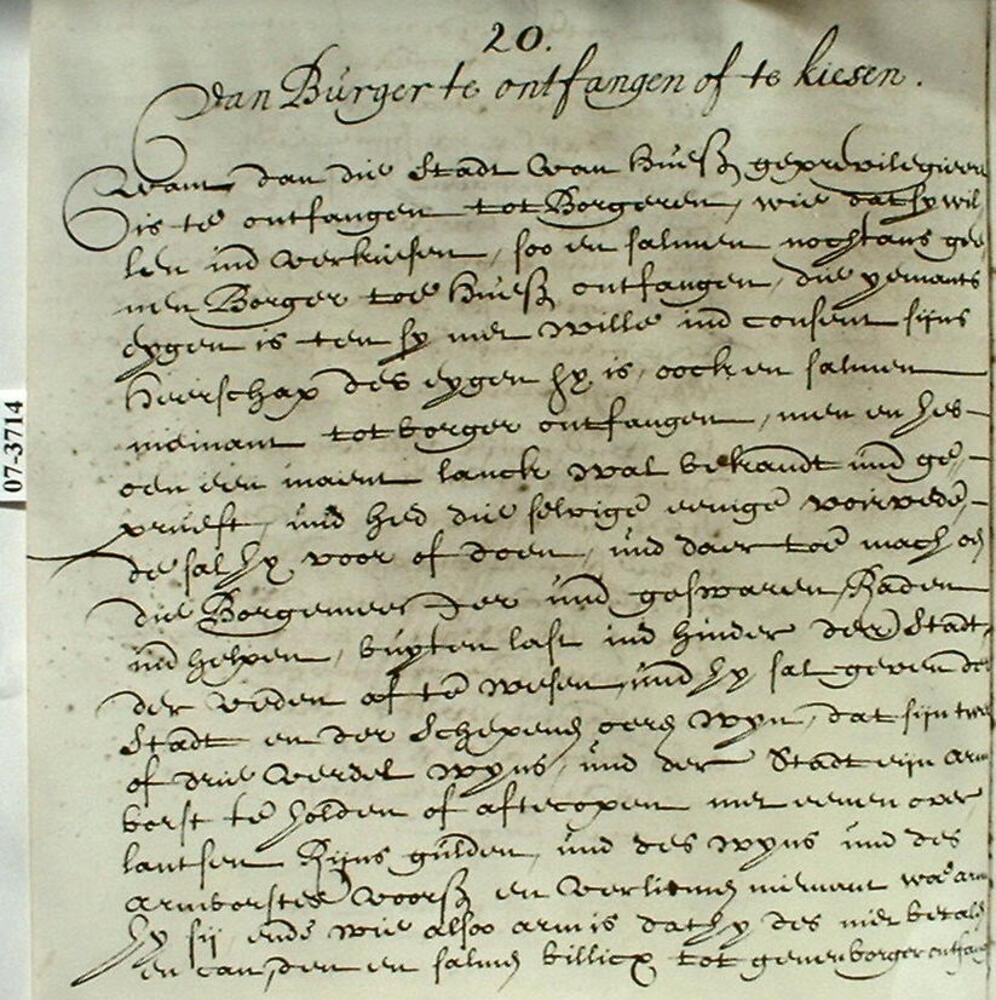 20.
Van Bürger te ontfangen of te kiesen.
Want dan die Stadt van Huesß geprivilegieert
is te ontfangen tot Borgeren, wie dat sy wil
len ind verkiesen, soo en salmen nochtans gee
nen Borger toe Huesß ontfangen, die yemants
eygen is ten sy met wille ind consent sijns
Heerschap des eygen hy is, oock en salmen
niemant tot borger ontfangen, men en heb
oen een maent lanck wal bekandt und ge-
prueft, und hed die selvige eenige
de sal hy voor of doen, und daer toe mach on
die Borgemeester und geswaren Raden
ind helpen, buyten last ind hinder der Stadt,
der veden af te wesen, und hy sal geven der
Stadt en der Schepens oeren wyn, dat sijn twe
of drie verdel wyns, und der Stadt eijn arm
borst te holden of aftecopen met eenen over
lantsen Rijns gulden, und des wyns und des
armborstes voorß en niemant woe arm
hy sij, ende wie alsoo arm is dat hy des niet betalen
en can, den en salmen billicx tot genen borger ontfang